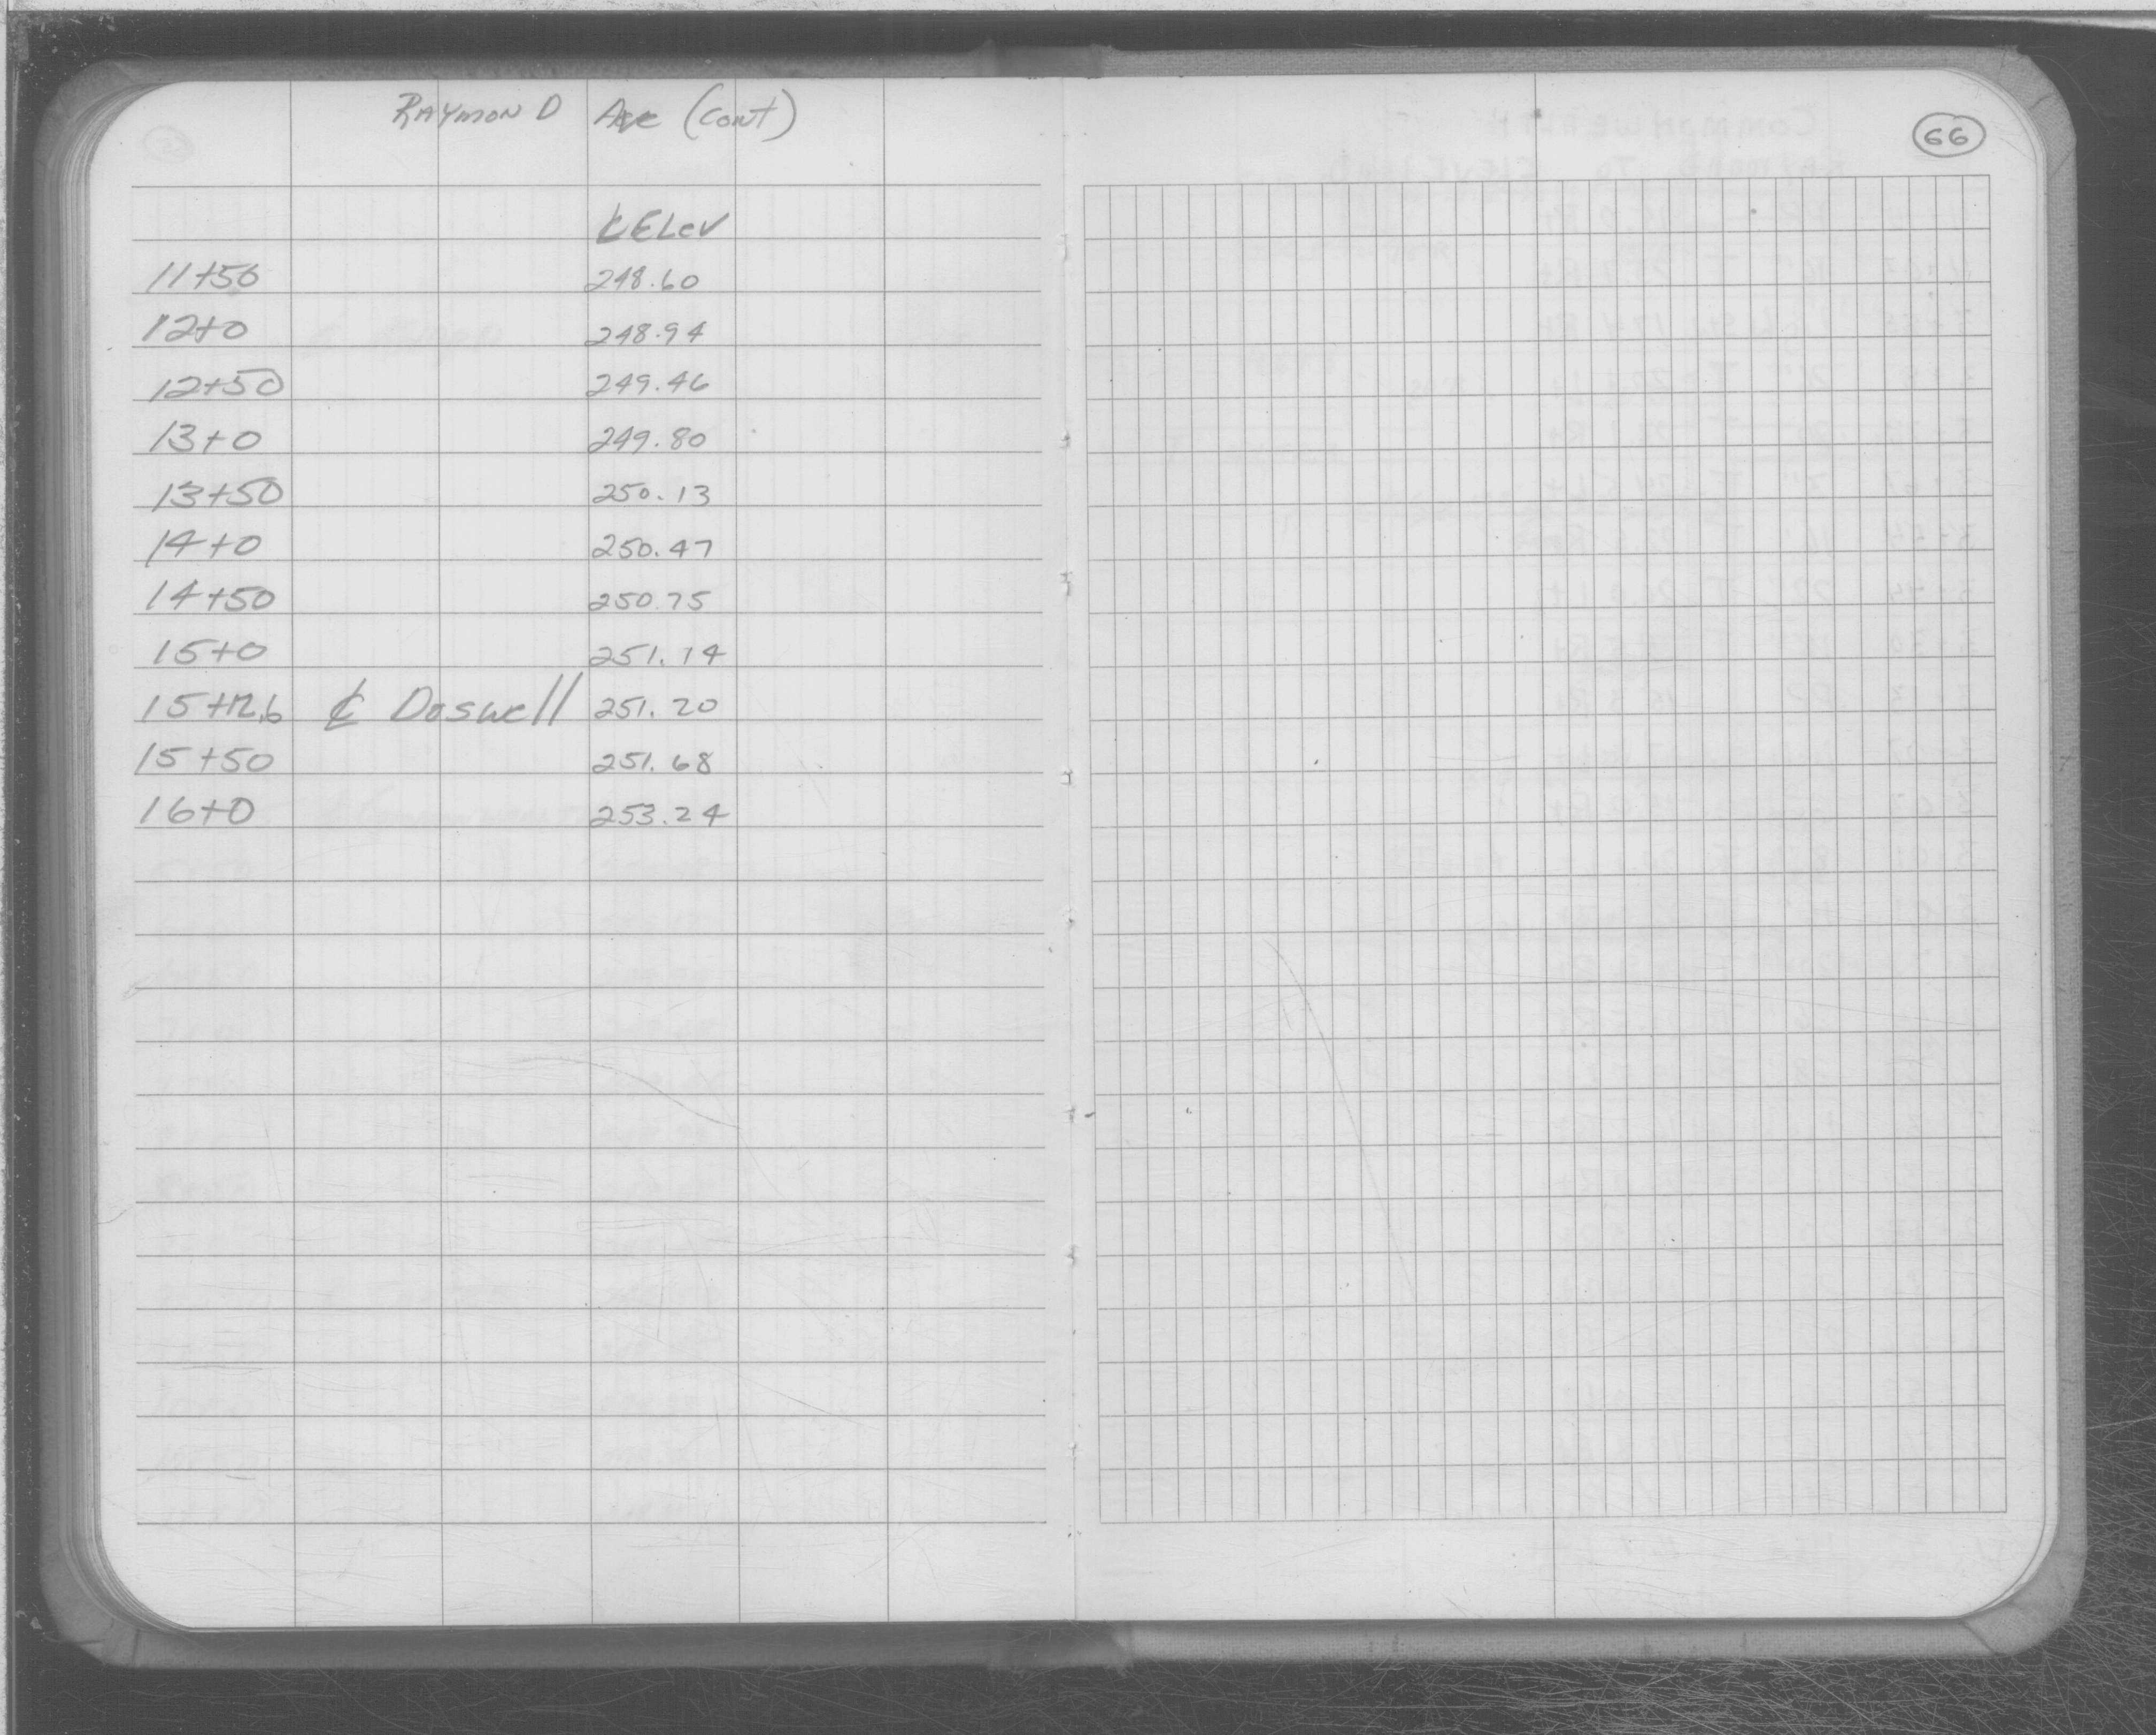 RAYMOND Ave (Cont)
66
℄ ELEV
11+50 248.60
12+0 248.94
12+50 249.46
13+0 249.80
13+50 250.13
14+0 250.47
14+50 250.75
15+0 251.14
15+12.6 ℄ Doswell 251.20
15+50 251.68
16+0 253.24